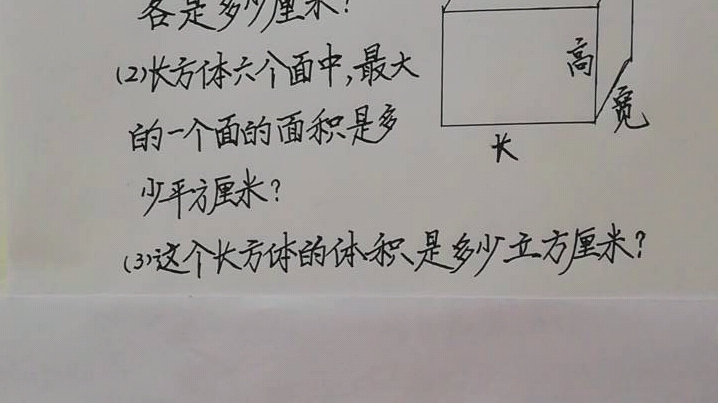 各是多少厘米?
(2)长方体六个面中,最大
的一个面的面积是多
少平方厘米?
(3)这个长方体的体积是多少立方厘米?
高
宽
长